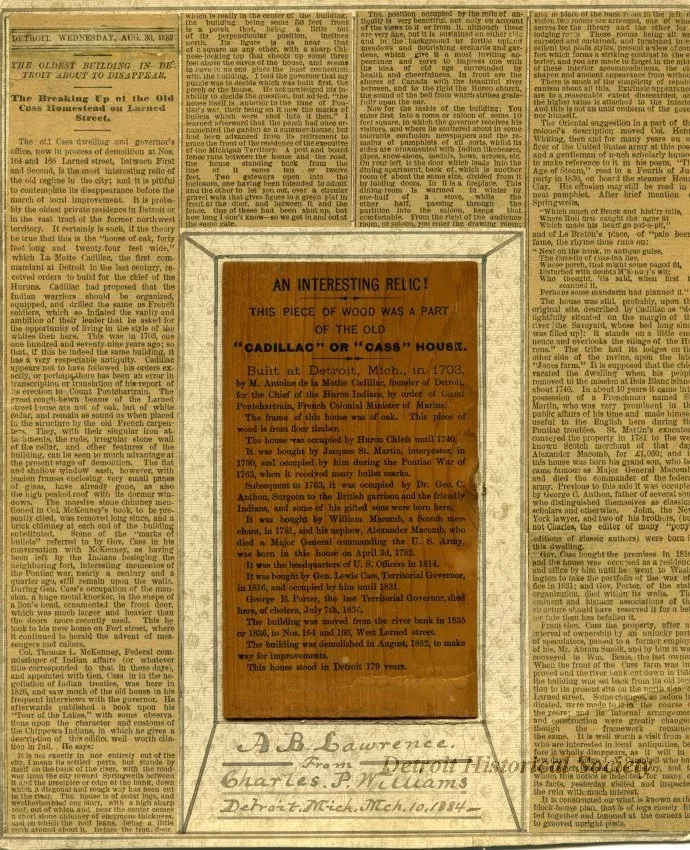 DETROIT, WEDNESDAY, AUG. 30, 1882
THE OLDEST BUILDING IN DE-
TROIT ABOUT TO DISAPPEAR.
The Breaking Up of the Old
Cass Homestead on Larned
Street.
The old Cass dwelling and governor's
office, now in process of demolition at Nos.
164 and 166 Larned street, between First
and Second, is the most interesting relic of
the old regime in the city; and it is pitiful
to contemplate its disappearance before the
march of local improvement. It is proba-
bly the oldest private residence in Detroit or
in the vast tract of the former northwest
territory. It certainly is such, if the theory
be true that this is the "house of oak, forty
feet long and twenty-four feet wide,"
which La Motte Cadillac, the first com-
mandant at Detroit in the last century, re-
ceived orders to build for the chief of the
Hurons. Cadillac had proposed that the
Indian warriors should be organized,
equipped, and drilled the same as French
soldiers, which so inflated the vanity and
ambition of their leader that he asked for
the opportunity of living in the style of the
whites then here. This was in 1703, one
one hundred and seventy-nine years ago; so
that, if this be indeed the same building, it
has a very respectable antiquity. Cadillac
appears not to have followed his orders ex-
actly, or perhaps there has been an error in
transcription or translation of his report of
its erection to Count Pontchartrain. The
great rough-hewn beams of the Larned
street house are not of oak, but of white
cedar, and remain as sound as when placed
in the structure by the old French carpen-
ters. They, with their singular iron at-
tachments, the rude, irregular stone wall
of the cellar, and other features of the
building, can be seen to much advantage at
the present stage of demolition. The flat
and shallow window sash, however, with
leaden frames enclosing very small panes
of glass, have already gone, as also
the high peaked roof with its dormer win-
dows. The massive stone chimney men-
tioned in Col. McKenney's book, to be pres-
ently cited, was removed long since, and a
brick chimney at each end of the building
substituted. Some of the "marks of
bullets" referred to by Gov. Cass in his
conversation with McKenney, as having
been left by the Indians besieging the
neighboring fort, interesting mementos of
the Pontiac war, nearly a century and a
quarter ago, still remain upon the walls.
During Gen. Cass's occupation of the man-
sion, a huge metal knocker, in the shape of
a lion's head, ornamented the front door,
which was much larger and heavier than
the doors more recently used. This he
took to his new home on Fort street, where
it continued to herald the advent of mes-
sengers and callers.
Col. Thomas L. McKenney, Federal com-
missioner of Indian affairs (or whatever
title corresponded to that in those days),
and appointed with Gen. Cass in the ne-
gotiation of Indian treaties, was here in
1826, and saw much of the old house in his
frequent interviews with the governor. He
afterwards published a book upon his
"Tour of the Lakes," with some observa-
tions upon the character and customs of
the Chippewa Indians, in which he gives a
description of this edifice well worth cita-
tion in full. He says:
It is not exactly in nor entirely out of the
city, I mean its settled parts, but stands by
itself on the bank of the river, with the road-
way from the city toward Springwells between
it and the precipice or edge of the bank, down
which a diagonal and rough way has been cut
to the river. The house is of cedar logs, and
weatherboarded one story, with a high sharp
roof, out of which and near the center comes
a short stone chimney of enormous thickness,
and on which the roof leans, being a little
sunk around about it. Before the front door,
which is really in the center of the building,
the building being some 50 feet front
is a porch that, being a little out
of its perpendicular position, inclines
north. Its figure is as near that
of a square as any other, with a sharp Chi-
nese-looking top that shoots up some three
feet above the eaves of the house, and seems
to have in no one place the least connection
with the building. I told the governor that my
puzzle was to decide which was built first, the
porch or the house. He acknowledged his in-
ability to decide the question, but added, "the
house itself is anterior to the time of Pon-
tiac's war, their being on it now the marks of
bullets which were shot into it then." I
learned afterwards that the porch had once or-
namented the garden as a summer-house; but
had been advanced from its retirement to
grace the front of the residence of the executive
of the Michigan Territory. A post and board
fence runs between the house and the road,
the house standing back from the
line of it some ten or twelve
feet. Two gateways open into the
inclosure, one having been intended to admit
and the other to let you out, over a circular
gravel walk that gives figure to a green plat in
front of the door, and between it and the
fence. One of these had been shut up, but
how long I don't know—so we got in and out
at the same gate.
The position occupied by the relic of an-
tiquity is very beautiful, not only on account
of the views to it or from it, although these
are very fine, but it is sustained on either side
and in the background by fertile upland
meadows and flourishing orchards and gar-
dens, which give it a most inviting ap-
pearance and serve to impress one with
the idea of old age surrounded by
health and cheerfulness. In front are the
shores of Canada with the beautiful river
between, and to the right the Huron church,
the sound of the bell from which strikes grate-
fully upon the ear.
Now for the inside of the building: You
enter first into a room or saloon of some 10
feet square, in which the governor receives his
visitors, and where lie scattered about in some
tolerable confusion newspapers and the re-
mains of pamphlets of all sorts, whilst its
sides are ornamented with Indian likenesses,
pipes, snow-shoes, medals, bows, arrows, etc.
On your left is the door which leads into the
dining apartment, back of, which is another
room of about the same size, divided from it
by folding doors. To it is a fireplace. This
dining room is warmed in winter by
one-half of a stove, while the
other half, passing through the
partition into the saloon, keeps that
comfortable. From the right of the audience
room, or saloon, you enter the drawing room;
AN INTERESTING RELIC!
THIS PIECE OF WOOD WAS A PART
OF THE OLD
"CADILLAC" OR "CASS" HOUSE.
Built at Detroit, Mich., in 1703,
by M. Antoine de la Mothe Cadillac, founder of Detroit,
for the Chief of the Huron Indians, by order of Count
Pontchartrain, French Colonial Minister of Marine.
The frame of this house was of oak. This piece of
wood is from floor timber.
The house was occupied by Huron Chiefs until 1740.
It was bought by Jacques St. Martin, interpreter, in
1750, and occupied by him during the Pontiac War of
1763, when it received many bullet marks.
Subsequent to 1763, it was occupied by Dr. Geo. C.
Anthon, Surgeon to the British garrison and the friendly
Indians, and some of his gifted sons were born here.
It was bought by William Macomb, a Scotch mer-
chant, in 1781, and his nephew, Alexander Macomb, who
died a Major General commanding the U. S. Army,
was born in this house on April 3d, 1782.
It was the headquarters of U. S. Officers in 1814.
It was bought by Gen. Lewis Cass, Territorial Governor,
in 1816, and occupied by him until 1831.
George B. Porter, the last Territorial Governor, died
here, of cholera, July 7th,
The building was moved from the river bank in 1835
or 1836, to Nos. 164 and 166, West Larned street.
The building was demolished in August, 1882, to make
way for improvements.
This house stood in Detroit 179 years.
A. B. Lawrence.
From
Charles. P. Williams
Detroit. Mich. Mch. 10. 1884
Detroit Historical Society
and in place of the back room in the left
vision two rooms are arranged, one of which
serves for the library and the other for
lodging room. These rooms being all well
carpeted and curtained, and furnished in ex-
cellent but plain style, present a view of com-
fort which forms a striking contrast to the ex-
terior; and you are made to forget in the midst
of these interior accommodations, the odd
shapes and ancient appearance from without.
There is much of the simplicity of repub-
licanism about all this. Extrinsic appearances
are to a reasonable extent disregarded, and
the higher value is attached to the interior.
And this is not an unfit emblem of the govern-
or himself.
The Oriental suggestion in a part of the
colonel's description moved Col. Henry
Whiting, then and for many years an of-
ficer of the United States army at this post
and a gentleman of much scholarly humor,
to make reference to it in his poem, "The
Age of Steam," read to a Fourth of July
party in 1830, on board the steamer Henry
Clay. His effusion may still be read in a
neat pamphlet. After brief mention of
Springwells,
"Which much of Brock and hist'ry tells,
Where Hull first caught the ague fit,
Which made his heart go pat-a-pit,"
and of Le Breton's place, of "pale beer"
fame, the rhyme thus runs on:
"Next on the bank, in antique guise,
The Cas-tle of Cass-ina lies,
Whose porch, that might some pagod fit,
Disturbed with doubts M'K-nn-y's wit;
Who thought, 'tis said, when first
scanned it,
Perhaps some mandarin had planned it."
The house was still, probably, upon the
original site, described by Cadillac as "de-
lightfully situated on the margin of the
river the Savoyard, whose bed long since
was filled up; it stands on a little emi-
nence and overlooks the village of the Hu-
rons." The tribe had its lodges on the
other side of the ravine, upon the late
"Jones farm." It is supposed that the chief
vacated the dwelling when his people
removed to the mission at Bois Blanc Island,
about 1740. In about 10 years it came into
possession of a Frenchman named St.
Martin, who was very prominent in the
public affairs of his time and made himself
useful to the English here during the
Pontiac troubles. St. Martin's executors
conveyed the property in 1781 to the well
known Scotch merchant of that day,
Alexander Macomb, for £1,060; and in
this house was born his grand son, who be-
came famous as Major General Macomb
and died the commander of the federal
army. Previous to this sale it was occupied
by George C. Anthon, father of several sons
who distinguished themselves as classical
scholars and otherwise. John, the New
York lawyer, and two of his brothers,
not Charles, the editor of many "pony"
editions of classic authors) were born in
this dwelling.
Gov. Cass bought the premises in 1816
and the house was occupied as a residence
and office by him until he went to Wash-
ington to take the portfolio of the war of-
fice in 1831; and Gov. Porter, of the state
organization, died within its walls.
From Gen. Cass the property, after an
interval of ownership by an unlucky party
of speculators, passed to a former employe
of his, Mr. Abram Smolk, and by him it was
conveyed to Wm. Beals, the last owner.
When the front of the Cass farm was im-
proved and the river bank cut down in 1835
the building was set back from its old loca-
tion to its present site on the north side of
Larned street. Some changes, as before in-
dicated, were made to it in the course of
the years; and its internal arrangement
and construction were greatly changed
though the framework remained
the same. It is well worth a visit from all
who are interested in local antiquities, be-
fore it wholly disappears, as it will in
It is constructed on what is known as the
block-house plan, that is of logs closely fit-
ted together and tenoned at the corners in-
to grooved upright posts.